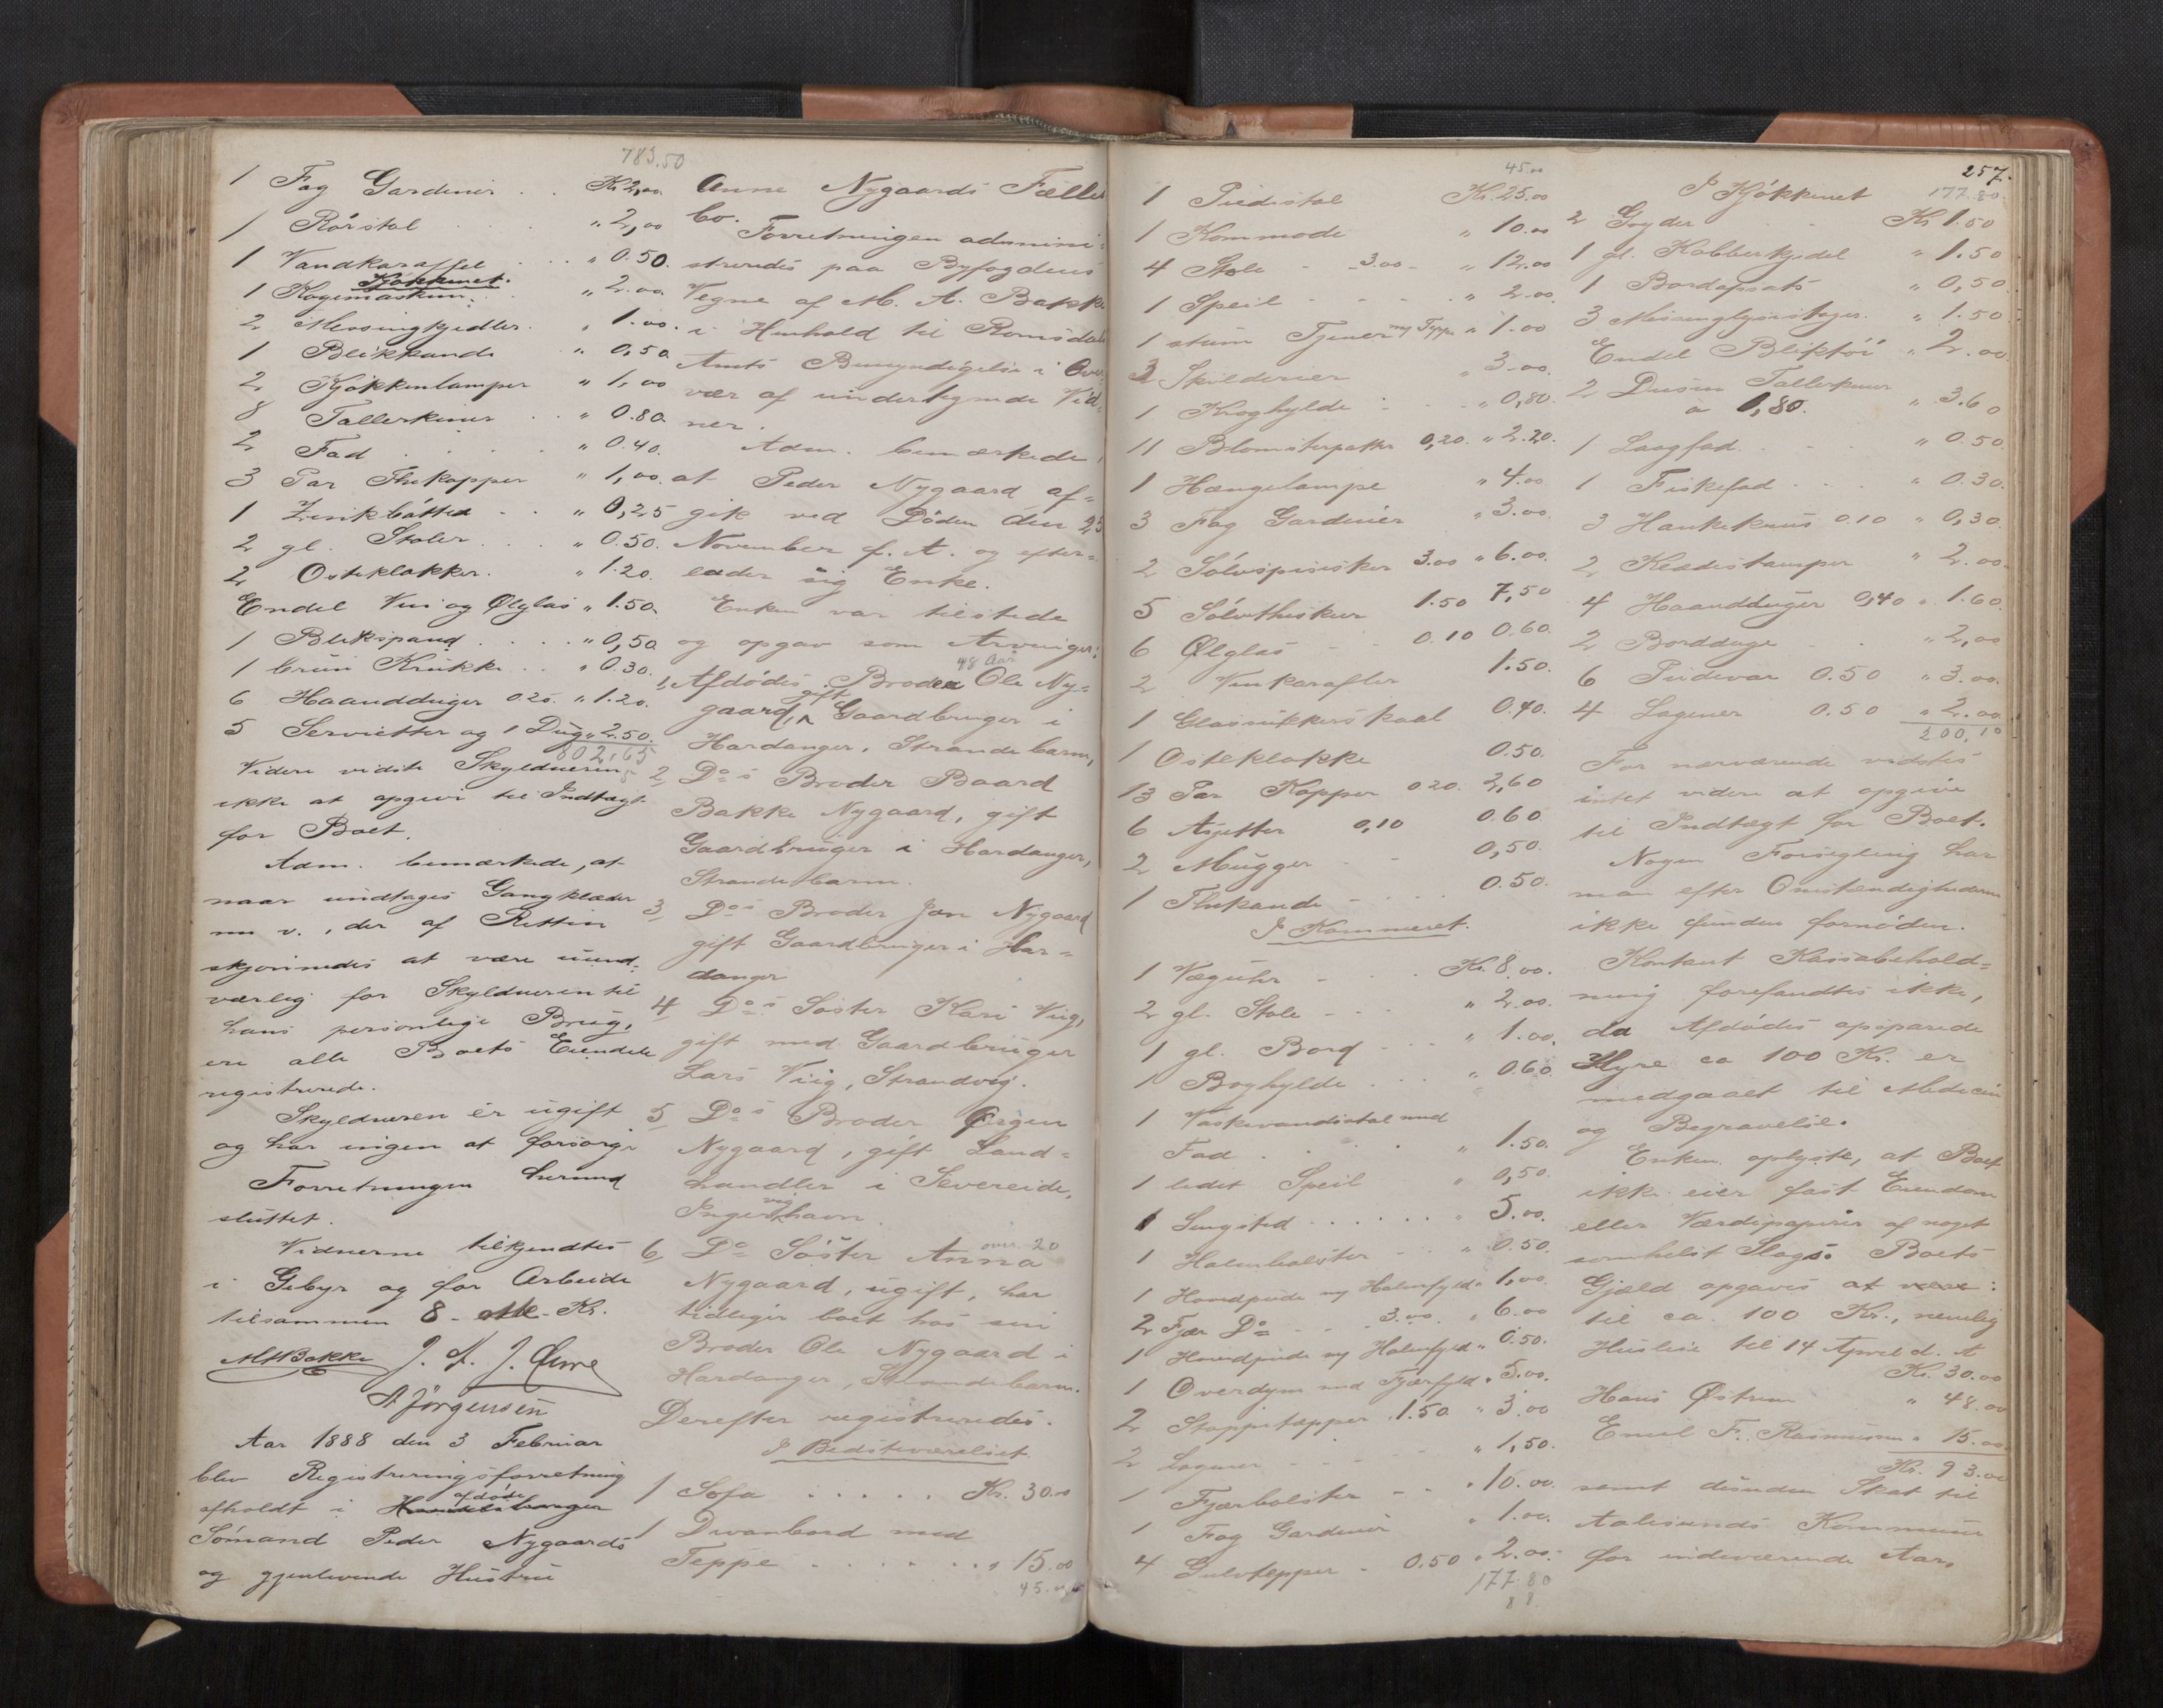 783.50
1 Fag Gardiner . . Kr. 2,00
1 Rörstol . . . " 2,00
1 Vandkaraffel . . " 0.50.
Kjøkkenet.
1 Kogemaskin . . " 2.00.
2 Messingkjedler . " 1.00.
1 Blikkande " 0,50.
2 Kjøkkenlamper " 1,00
8 Tallerkener . . " 0.80.
2 Fad . . . . " 0.40.
3 Par Thekopper " 1,00.
1 Zinkbøtte . . " 0,25
2 gl. Stoler . . . " 0.50.
2 Osteklokker. " 1.20.
Endel Vin og Ølglas " 1.50.
1 Blikspand . . . " 0,50
1 brun Krukke . . " 0.30.
6 Haandduger 0.20. " 1.20.
5 Servietter og 1 Dug " 2.50.
802,65
Videre vidste Skyldneren
ikke at opgive til Indtægt
for Boet.
Adm. bemærkede, at
naar undtages Gangklæder
m. v., der af Retten
skjønnedes at være uund-
værlig for Skyldneren til
hans personlige Brug,
ere alle Boets Eiendele
registrerede.
Skyldneren er ugift
og har ingen at forsørge
Forretningen hermed
sluttet.
Vidnerne tilkjendtes
i Gebyr og for Arbeide
tilsammen 8 Kr.
MABakke J. A. J. Øwre
A Jørgensen
Aar 1888 den 3 Februar
blev Registreringsforretning
afholdt i afdøde
Sømand Peder Nygaards
og gjenlevende Hustru
Anne Nygaards Fælles
bo.
Forretningen admini-
streredes paa Byfogdens
Vegne af M. A. Bakke
i Henhold til Romsdals
Amts Bemyndigelse i Over-
vær af undertegnede Vid-
ner.
Adm. bemærkede,
at Peder Nygaard af-
gik ved Døden den 25
November f. A. og efter-
lader sig Enke.
Enken var tilstede
og opgav som Arvinger:
48 Aar
1, Afdødes Broder Ole Ny-
gaard, gift Gaardbruger i
Hardanger, Strandebarm,
2 Dos Broder Baard
Bakke Nygaard, gift
Gaardbruger i Hardanger,
Strandebarm.
3, Dos Broder Jon Nygaard
gift Gaardbruger i Har-
danger
4 Dos Søster Kari Viig,
gift med Gaardbruger
Lars Viig, Strandvig.
5 Dos Broder Ørgen
Nygaard, gift Land-
handler i Severeide,
Ingervighavn.
6, Do Søster Anna over 20
Nygaard, ugift, har
tidligere boet hos sin
Broder Ole Nygaard i
Hardanger, Strandebarm.
Derefter registreredes.
I Bedsteværelset
1 Sofa . . . . . Kr. 30.00
1 Divanbord med
Teppe . . . . . . " 15.00
45.00
45.00
1 Piedistal Kr. 25.00
1 Kommode " 10.00
4 Stole - 3.00 - " 12.00
1 Speil - - - " 2.00.
1 stum Tjener og Teppe " 1.00
3 Skilderier " 3.00.
1 Kroghylde - . " 0,80.
11 Blomsterpotter 0,20. " 2.20.
1 Hængelampe " 4.00
3 Fag Gardiner " 3.00.
2 Sølvspiseskeer 3.00 " 6.00.
5 Sølvtheskeer 1.50 7,50
6 Ølglas - - 0.10 0.60.
2 Vinkarafler 1.50.
1 Glassukkerskaal 0.40.
1 Osteklokke 0.50.
13 Par Kopper 0 20. 2,60
6 Asjetter 0,10 0.60.
2 Mugger - - 0,50.
1 Thekande - - 0.50.
I Kammeret.
1 Væguhr - . . Kr. 8.00.
2 gl. Stole - - - " 2.00.
1 gl. Bord - - " 1.00.
1 Boghylde . . . " 0.60.
1 Vaskevandsstol med
Fad . . . . " 1.50.
1 lidet Speil " 0,50.
1 Sengsted . . . . . . " 5.00.
1 Halmbolster - - " 0.50.
1 Hovedpude og Halmfyld " 1,00.
2 Fjær Do - - - 3.00. " 6.00
1 Hovedpude og Halmfyld " 0.50.
1 Overdyne med Fjærfyld " 5.00.
2 Stoppetæpper 1.50 " 3.00
2 Lagener - - - - " 1,50.
1 Fjærbolster - - " 10.00.
1 Fag Gardiner " 1.00.
4 Gulvtepper - 0.50 " 2.00.
177.80
8 8
257.
I Kjøkkenet 177.80.
2 Gryder - Kr 1.50
1 gl. Kobberkjedel " 1.50
1 Bordopsats " 0,50
3 Messinglysestager. " 1.50
Endel Bliktøi " 2.00.
2 Dusin Tallerkener
a 1,80. " 3.60
1 Laagfad - - " 0.50
1 Fiskefad . . . " 0.30.
3 Hankekrus 0.10 " 0,30.
2 Klædestamper " 2.00.
4 Haandduger 0,40 " 1.60.
2 Borddug . . " 2,00
6 Pudevar 0.50 " 3.00.
4 Lagener 0.50 " 2.00.
200,10
For nærværende vidstes
intet videre at opgive
til Indtægt for Boet.
Nogen Forsegling har
man efter Omstændighederne
ikke funden fornøden.
Kontant Kassabehold-
ning forefandtes ikke,
da Afdødes opsparede
Hyre ca 100 Kr. er
medgaaet til Medicin
og Begravelse.
Enken oplyste, at Boet
ikke eier fast Eiendom
eller Værdipapirer af noget
somhelst Slags. Boets
Gjæld opgaves at være:
til ca. 100 Kr., nemlig
Husleie til 14 April d. A
Kr. 30.00
Hans Østrem " 48.00
Emil F. Rasmussen " 15.00
Kr. 93.00
samt desuden Skat til
Aalesunds Kommune
for indeværende Aar.